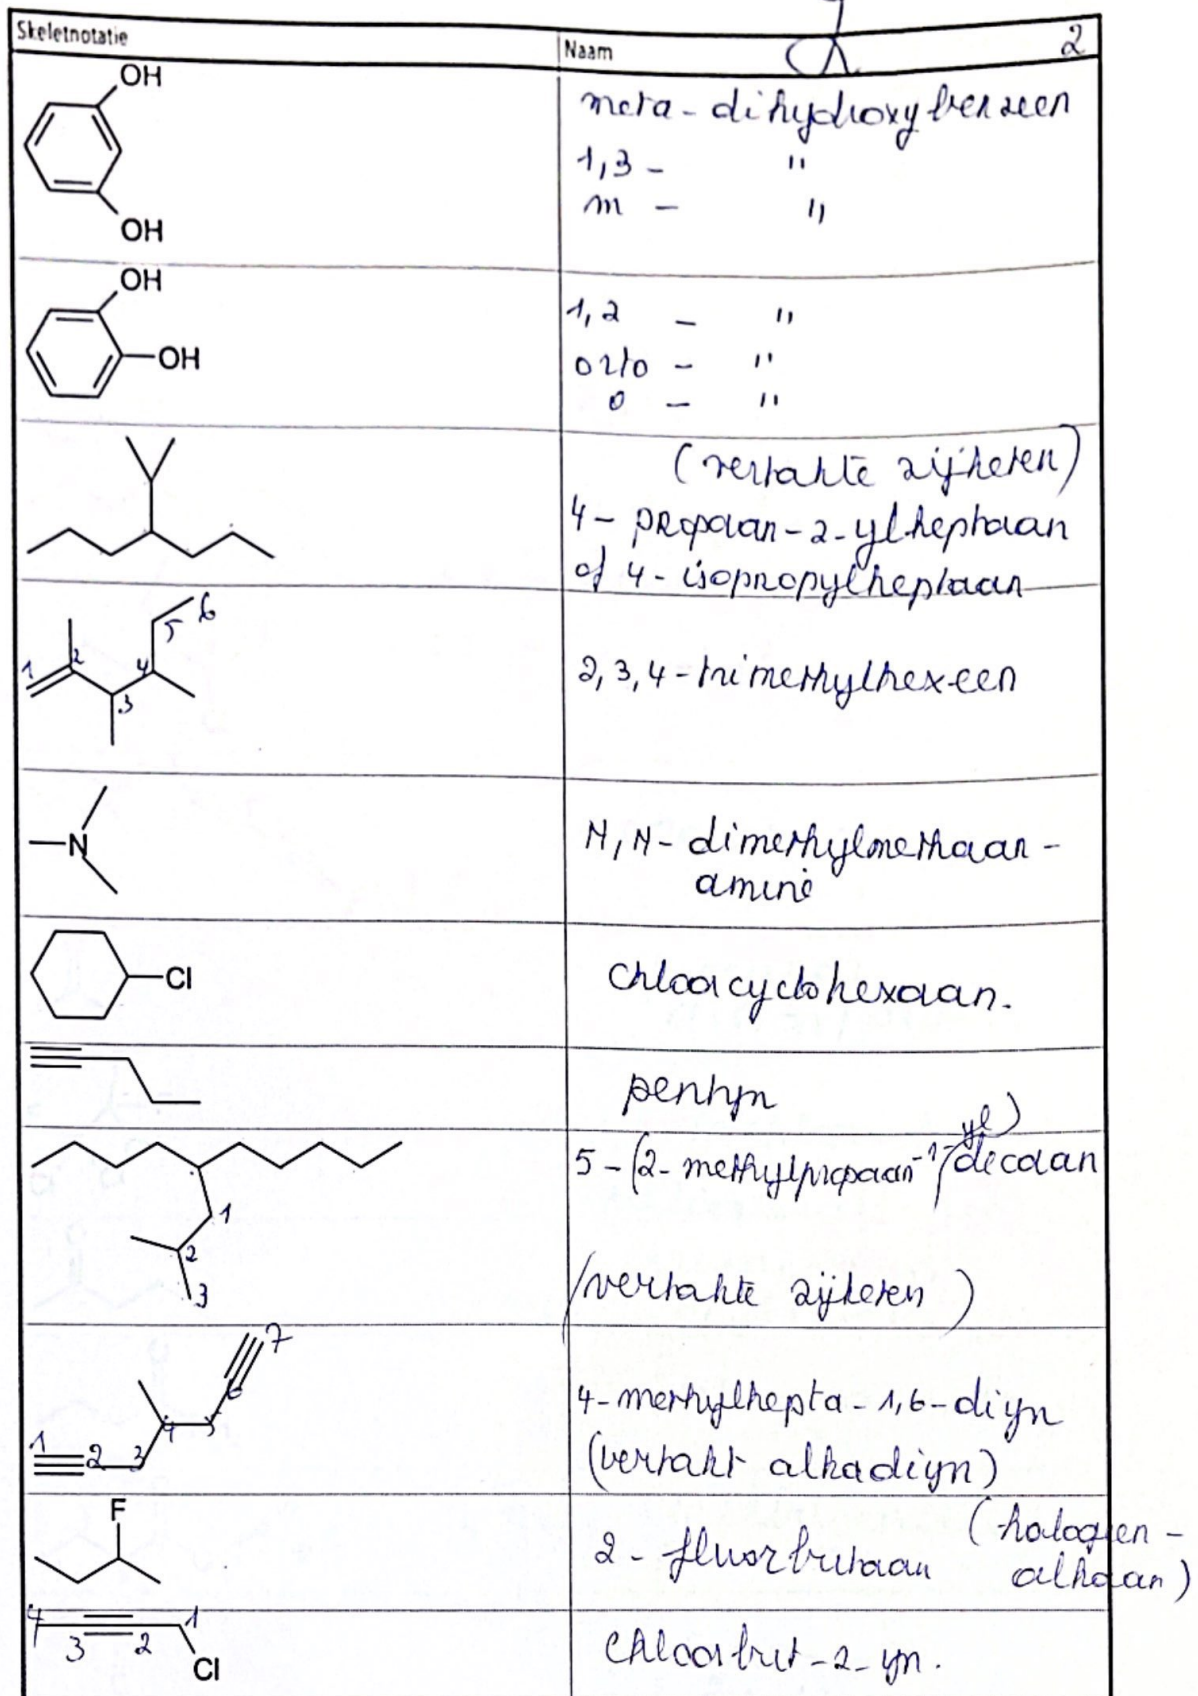 Skeletnotatie
Naam
2
OH
OH
meta - dihydroxybenzeen
1,3 - "
m - "
OH
OH
1,2 - "
orto - "
o - "
(vertakte zijketen)
4 - propaan - 2 - ylheptaan
of 4 - isopropylheptaan
1 2 3 4 5 6
2,3,4 - trimethylhexeen
N
N,N - dimethylmethaan -
amine
Cl
Chloorcyclohexaan.
pentyn
1 2 3
5 - (2 - methylpropaan - 1 - yl) decaan
(vertakte zijketen)
1 2 3 4 5 6 7
4 - methylhepta - 1,6 - diyn
(vertakt alkadiyn)
F
2 - fluorbutaan (halogeen -
alkaan)
4 3 2 1
Cl
Chloorbut - 2 - yn.